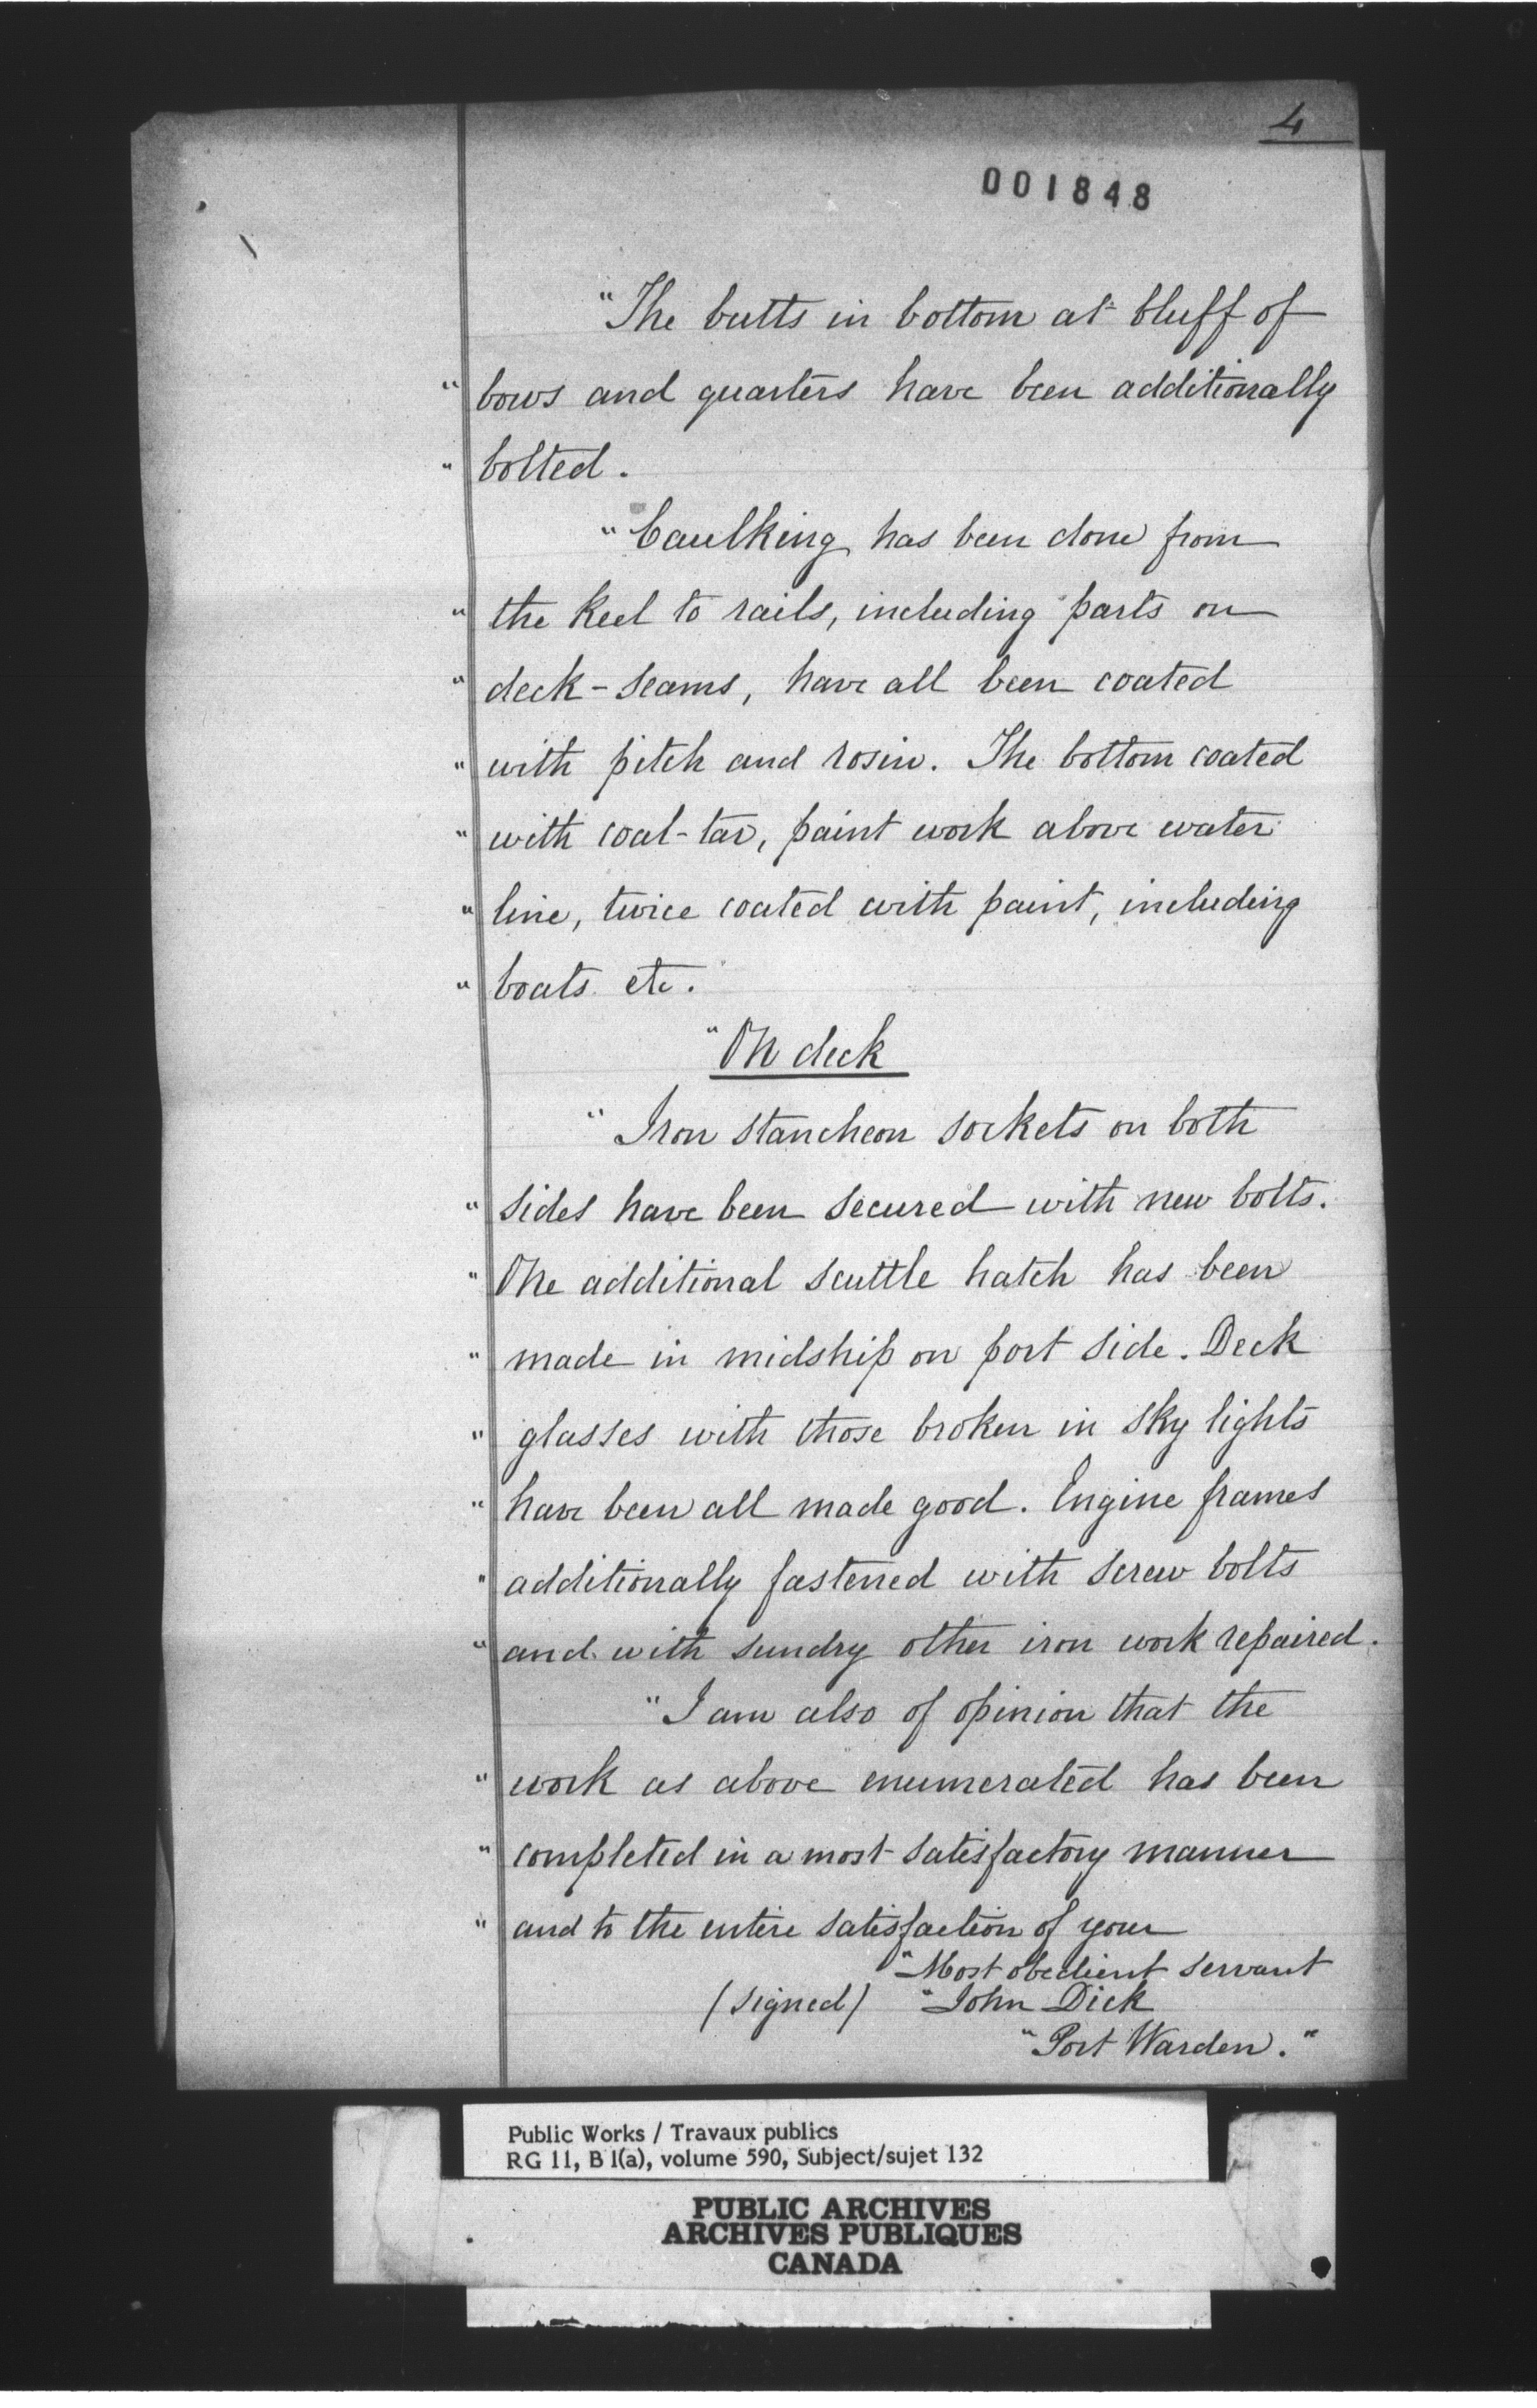 4
001848
"The butts in bottom at bluff of
" bows and quarters have been additionally
" bolted.
"Caulking has been done from
" the keel to rails, including parts on
" deck-seams, have all been coated
" with pitch and rosin. The bottom coated
" with coal-tar, paint work above water
" line, twice coated with paint, including
" boats etc.
"On deck
"Iron stancheon sockets on both
" sides have been secured with new bolts.
" One additional scuttle hatch has been
" made in midship on port side. Deck
" glasses with those broken in sky lights
" have been all made good. Engine frames
" additionally fastened with screw bolts
" and with sundry other iron work repaired.
"I am also of opinion that the
" work as above enumerated has been
" completed in a most satisfactory manner
" and to the entire satisfaction of your
"Most obedient servant
(signed) "John Dick
"Port Warden."
Public Works / Travaux publics
RG 11, B 1(a), volume 590, Subject/sujet 132
PUBLIC ARCHIVES
ARCHIVES PUBLIQUES
CANADA